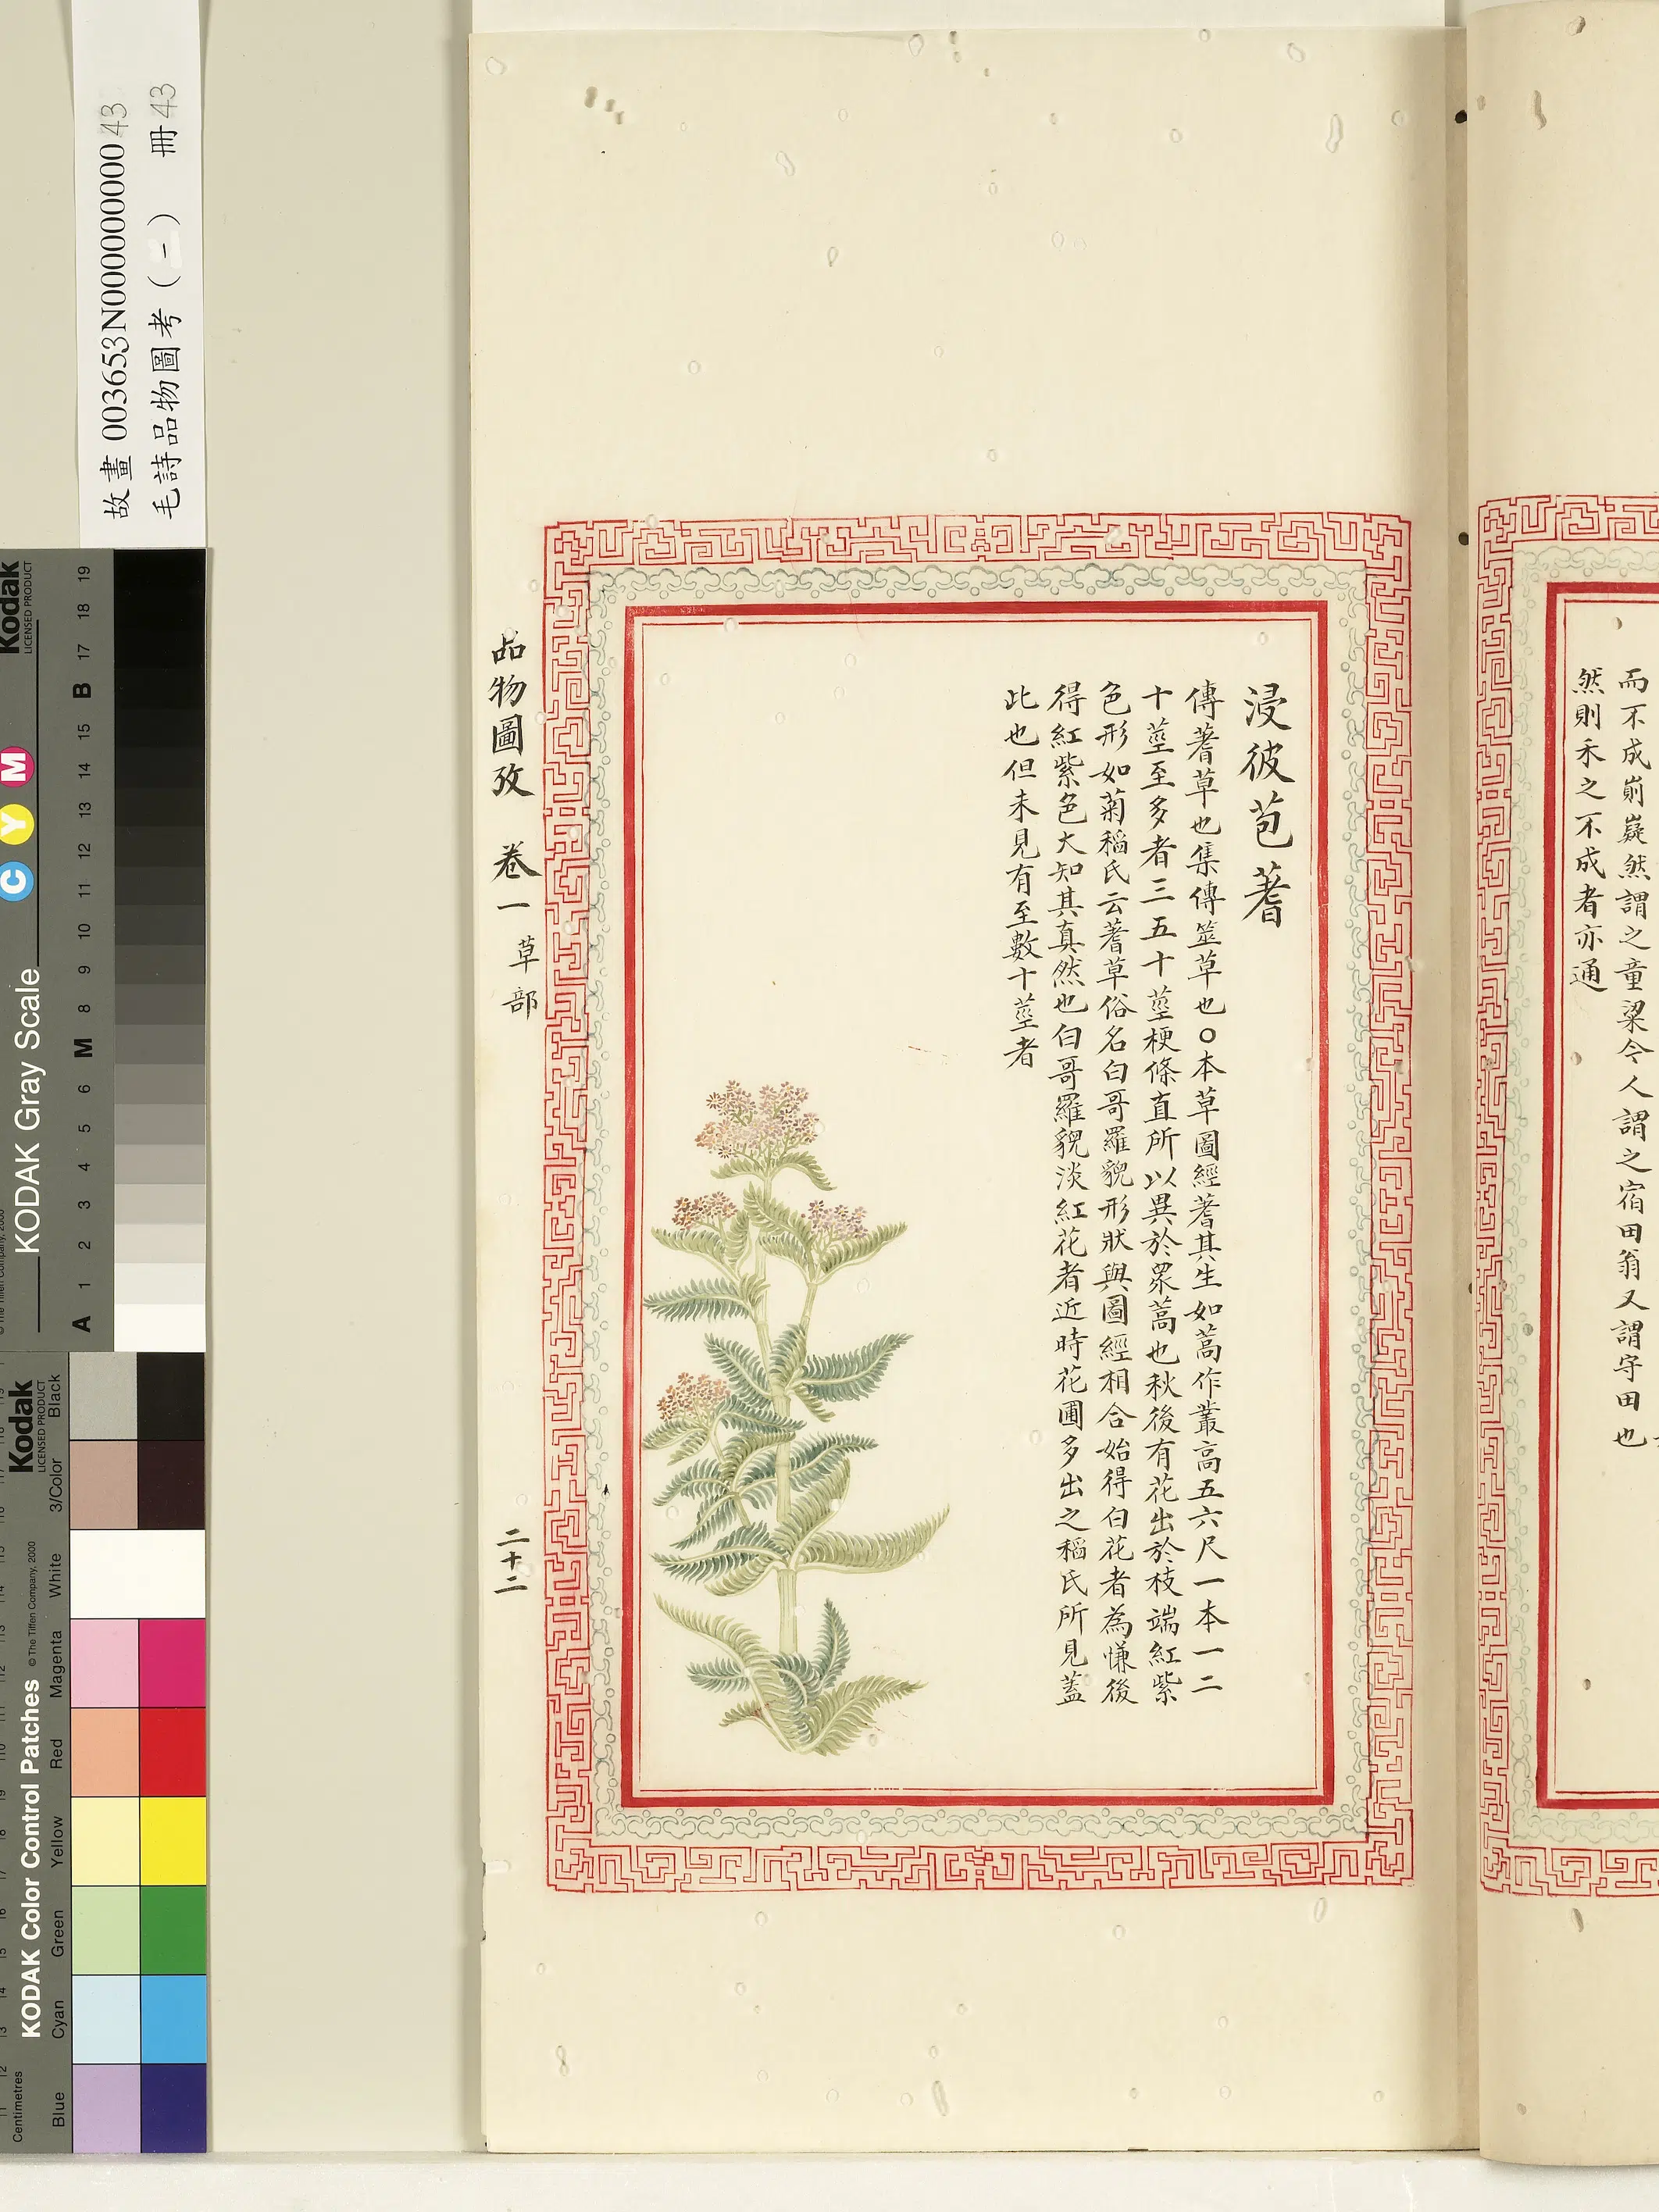 而不成崱嶷然謂之童梁今人謂之宿田翁又謂守田也
然則禾之不成者亦通
浸彼苞蓍
傳蓍草也集傳筮草也○本草圖經蓍其生如蒿作叢高五六尺一本一二
十莖至多者三五十莖梗條直所以異於眾蒿也秋後有花出於枝端紅紫
色形如菊稻氏云蓍草俗名白哥羅貌形狀與圖經相合始得白花者為慊後
得紅紫色大知其真然也白哥羅貌淡紅花者近時花圃多出之稻氏所見蓋
此也但未見有至數十莖者
品物圖攷 卷一 草部 二十二
故畫 003653N000000000 43
毛詩品物圖考(一) 冊 43
Kodak
LICENSED PRODUCT
KODAK Gray Scale
C Y M
© The Tiffen Company, 2000
A 1 2 3 4 5 6 M 8 9 10 11 12 13 14 15 B 17 18 19
Kodak
LICENSED PRODUCT
KODAK Color Control Patches © The Tiffen Company, 2000
Blue Cyan Green Yellow Red Magenta White 3/Color Black
Centimetres